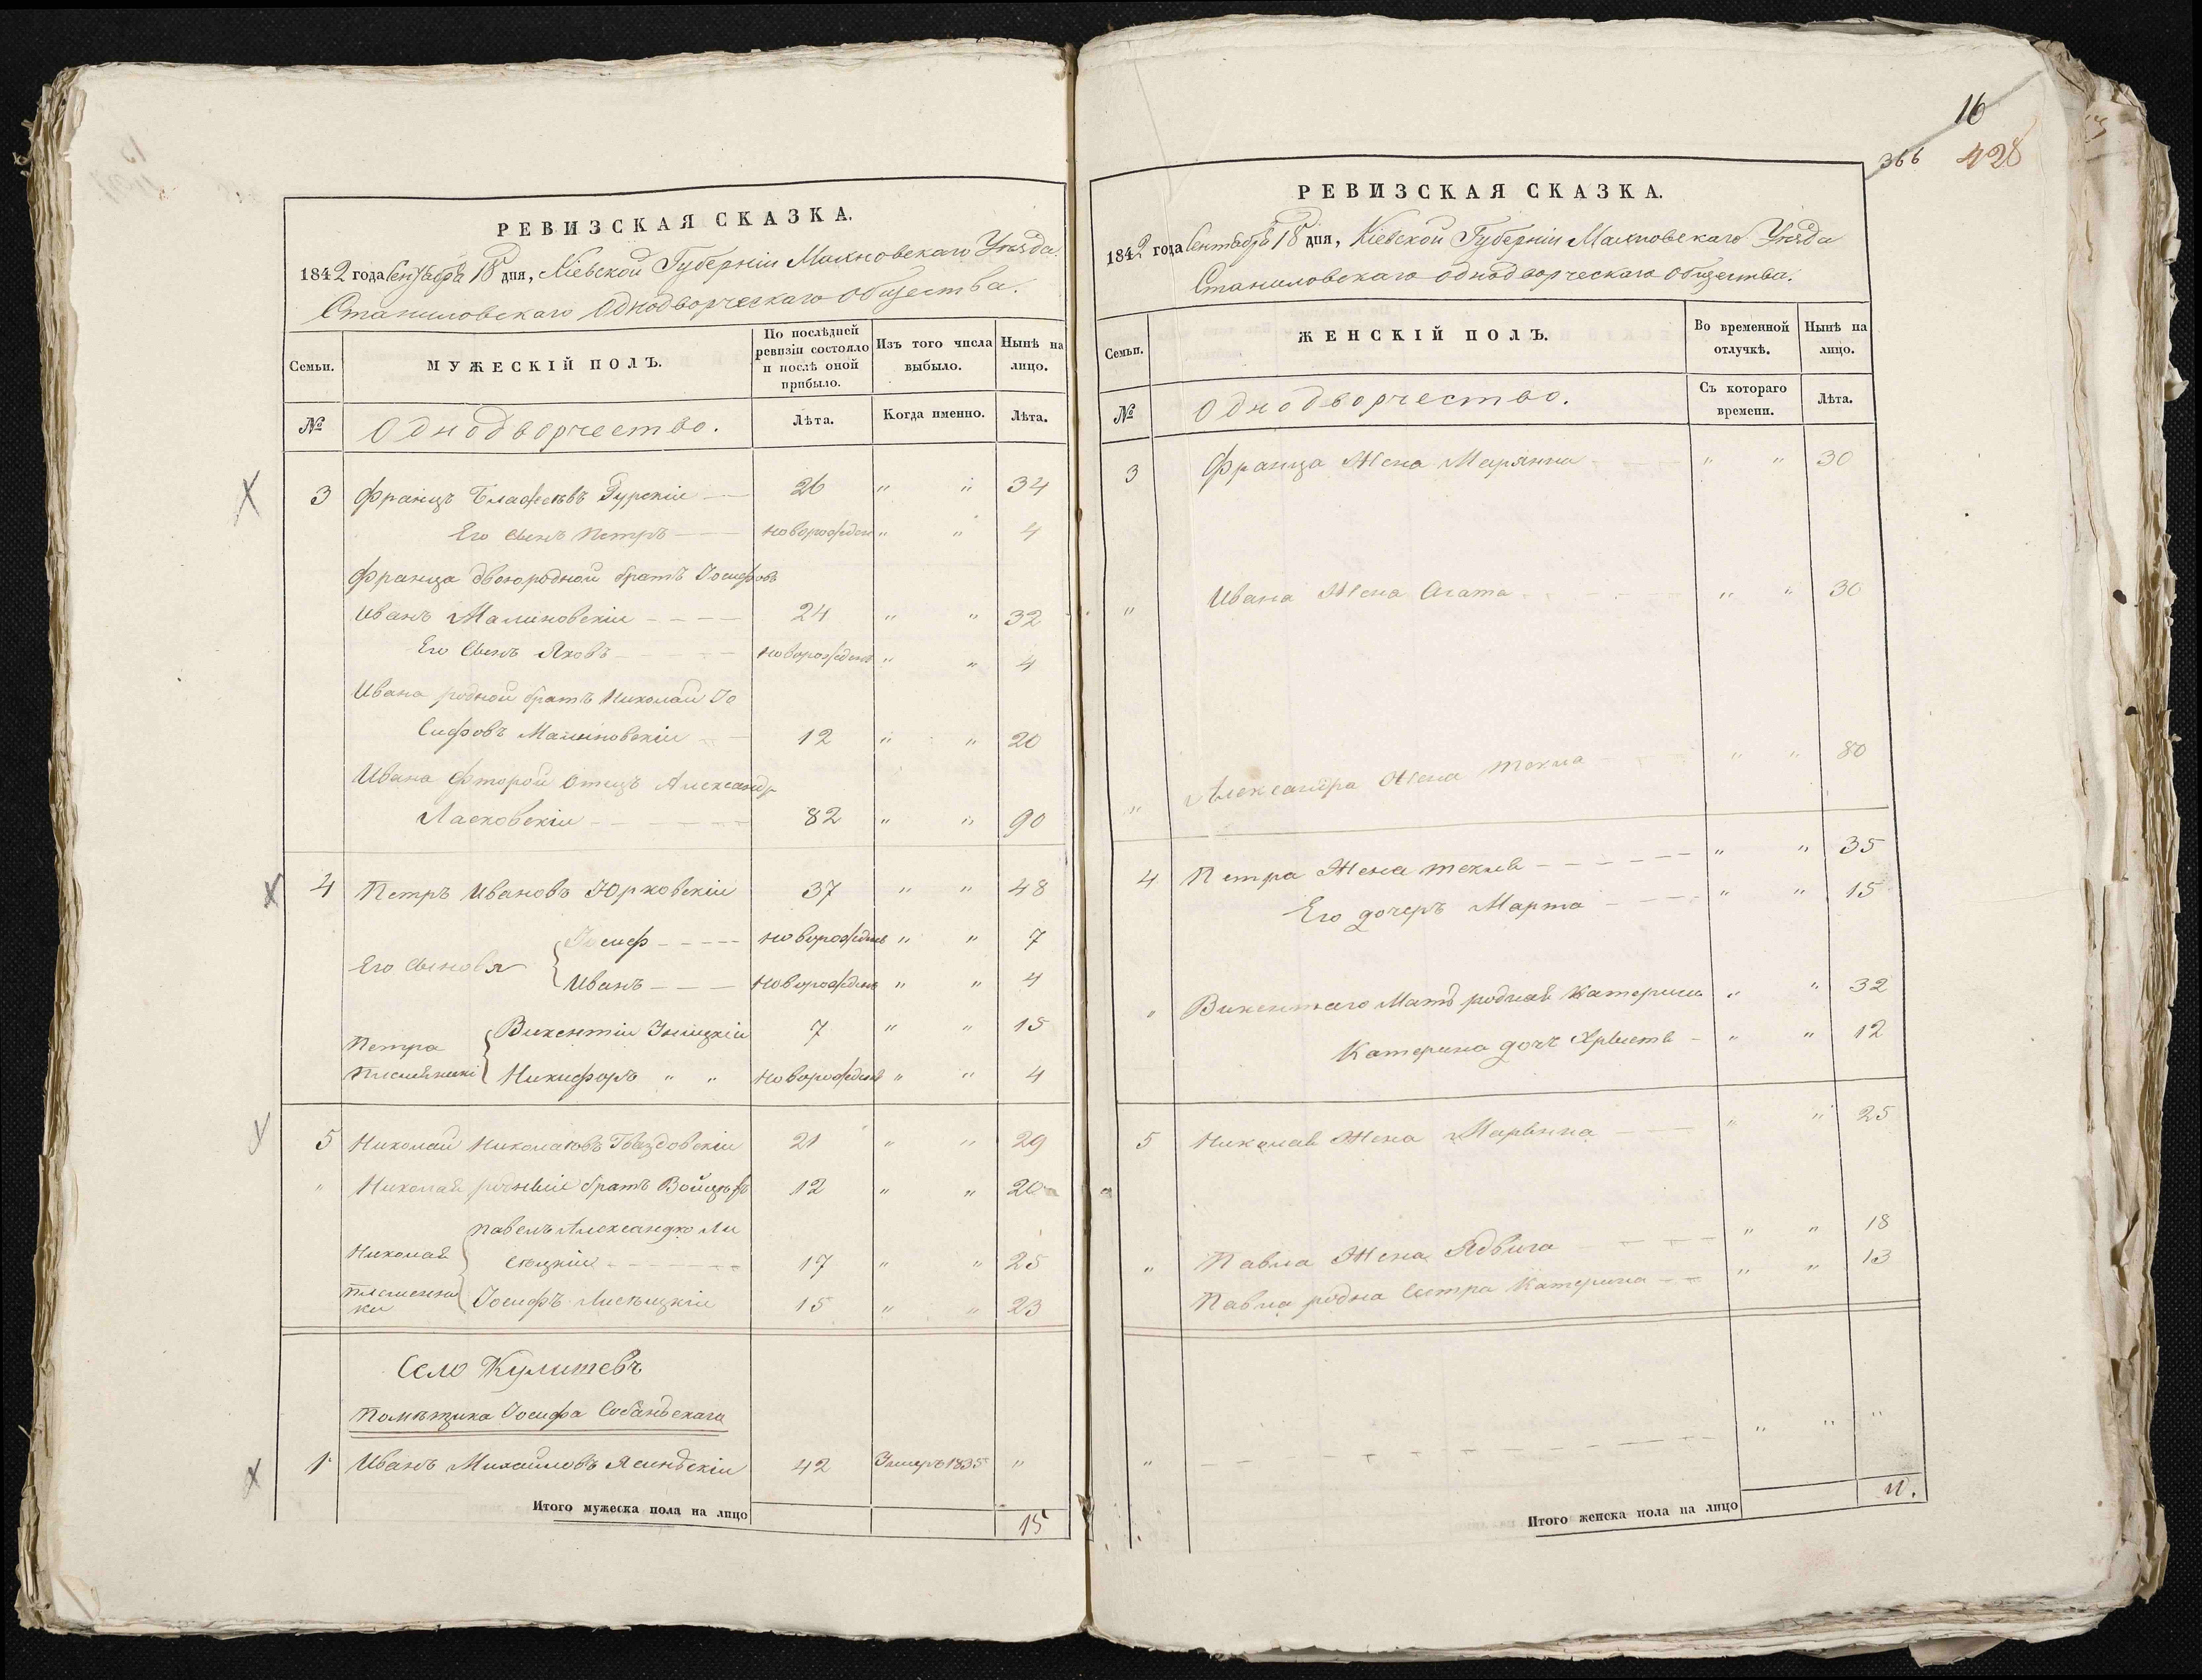 РЕВИЗСКАЯ СКАЗКА.
1842 года Сентября 18 дня, Кіевской Губерніи Махновскаго Уѣзда
Станиловскаго Однодворческаго Общества.
Семьи.
МУЖЕСКІЙ ПОЛЪ.
По послѣдней ревизіи состояло и послѣ оной прибыло.
Изъ того числа выбыло.
Нынѣ на лицо.
№
Однодворчество.
Лѣта.
Когда именно.
Лѣта.
3 Францъ Гурскій 26 " " 34
Его Сынъ Петръ новорожден " " 4
Франца двоюродной братъ Іосифовъ
Иванъ Малиновскіи 24 " " 32
Его Сынъ Яковъ новорожденъ " " 4
Ивана родной братъ Николай Іо
сифовъ Малиновскіи 12 " " 20
Ивана фторой Отецъ Александр
Ласковскіи 82 " " 90
4 Петръ Ивановъ Юрковскіи 37 " " 48
Его Сыновя
Іосиф новорожденъ " " 7
Иванъ новорожденъ " " 4
Петра
Викентіи 7 " " 15
Никифоръ " " новорожденъ " " 4
5 Николай Николаювъ Гвяздовскіи 21 " " 29
" Николая братъ Войцѣхъ 12 " " 20
Николая
племенни
ки
Павелъ Александро Ли
сѣцкіи 17 " " 25
Іосифъ Лисѣцкіи 15 " " 23
Село Кулишевъ
Помѣщика Іосифа Собаньскаго
1 Иванъ Михайловъ Ясиньскіи 42 Умеръ 1835 "
Итого мужеска пола на лицо 15
16
366 428
РЕВИЗСКАЯ СКАЗКА.
1842 года Сентября 18 дня, Кіевской Губерніи Махновскаго Уѣзда
Станиловскаго Однодворческаго Общества.
Семьи.
ЖЕНСКІЙ ПОЛЪ.
Во временной отлучкѣ.
Нынѣ на лицо.
№
Однодворчество.
Съ котораго времени.
Лѣта.
3 Франца Жена Марянна " " 30
" Ивана Жена Агата " " 30
" Александра Жена Текла " " 80
4 Петра Жена Текля " " 35
Его дочеръ Марта " " 15
" Викентаго Мать родная Катерина " " 32
Катерина доч " " 12
5 Николая Жена Марянна " " 25
" Павла Жена Ядвига " " 18
Павла родна Сестра Катерина " " 13
" " " "
Итого женска пола на лицо 11.